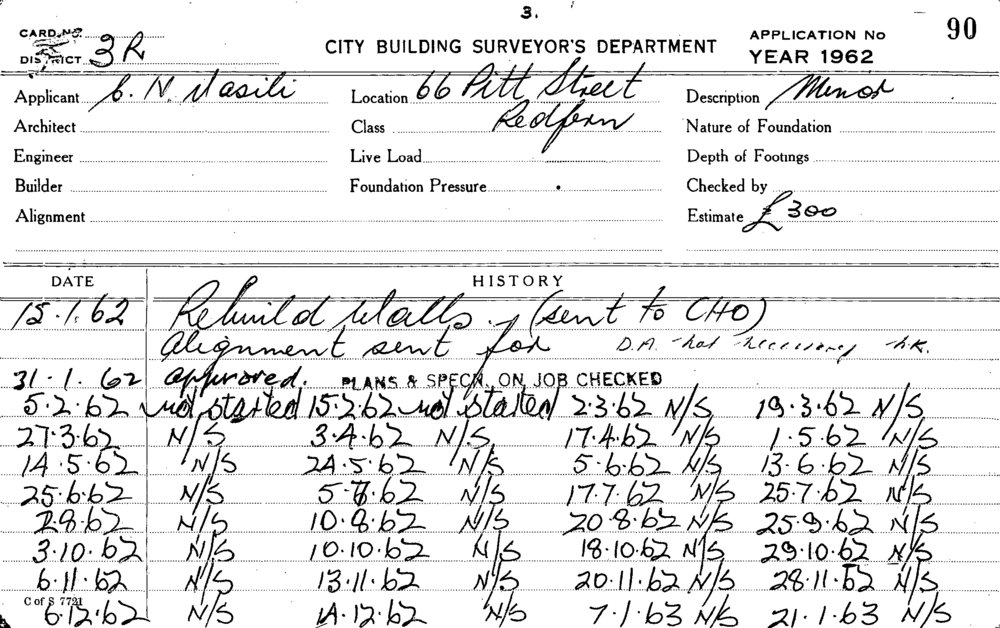 3.
CARD NO
DISTRICT 3R
CITY BUILDING SURVEYOR'S DEPARTMENT
APPLICATION No 90
YEAR 1962
Applicant C. N. Vasili Location 66 Pitt Street Description Minor
Architect Class Redfern Nature of Foundation
Engineer Live Load Depth of Footings
Builder Foundation Pressure Checked by
Alignment Estimate £300
DATE HISTORY
15.1.62 Rebuild Walls. (sent to CHO)
Alignment sent for D.A. not necessary
31.1.62 approved. PLANS & SPECN. ON JOB CHECKED
5.2.62 not started 15.2.62 not started 2.3.62 N/S 19.3.62 N/S
27.3.62 N/S 3.4.62 N/S 17.4.62 N/S 1.5.62 N/S
14.5.62 N/S 24.5.62 N/S 5.6.62 N/S 13.6.62 N/S
25.6.62 N/S 5.7.62 N/S 17.7.62 N/S 25.7.62 N/S
2.8.62 N/S 10.8.62 N/S 20.8.62 N/S 25.9.62 N/S
3.10.62 N/S 10.10.62 N/S 18.10.62 N/S 29.10.62 N/S
6.11.62 N/S 13.11.62 N/S 20.11.62 N/S 28.11.62 N/S
C of S 7721
6.12.62 N/S 14.12.62 N/S 7.1.63 N/S 21.1.63 N/S